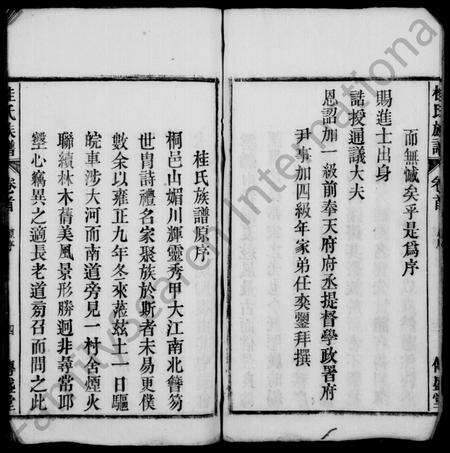 而無憾矣乎是為序
賜進士出身
誥授通議大夫
恩詔加一級前奉天府府丞提督學政署府
尹事加四級年家弟任奕鑾拜撰
桂氏族譜
卷首
傳盛堂
桂氏族譜原序
桐邑山媚川輝靈秀甲大江南北簪笏
世胄詩禮名家聚族於斯者未易更僕
數余以雍正九年冬來蒞茲土一日驅
皖車涉大河而南道旁見一村舍煙火
聯績林木蒨美風景形勝迥非尋常耶
壑心竊異之適長老道芻召而問之此
桂氏族譜
卷首
原序
四
傳盛堂
FamilySearch International